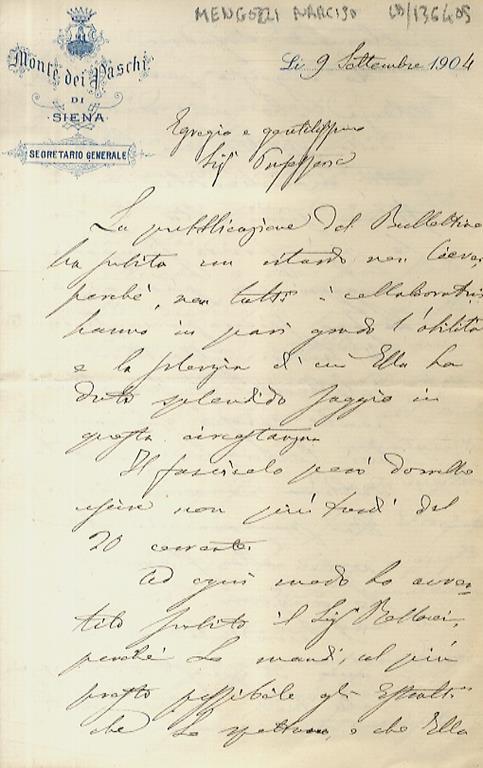 MENGOZZI NARCISO
Monte dei Paschi
DI
SIENA
SEGRETARIO GENERALE
Li 9 Settembre 1904
Egregio e gentilissimo
Sigr Professore
La pubblicazione del Bullettino
ha subito un ritardo non lieve,
perchè, non tutti i collaboratori
hanno in pari grado l'abilità
e la di cui Ella ha
dato splendido saggio in
questa circostanza
Il fascicolo però dovrebbe
uscire non più tardi del
20 corrente.
Ad ogni modo ho avver-
tito subito il Sigr
perchè Le mandi, al più
presto possibile gli Estratti
che Le spettano, e che Ella